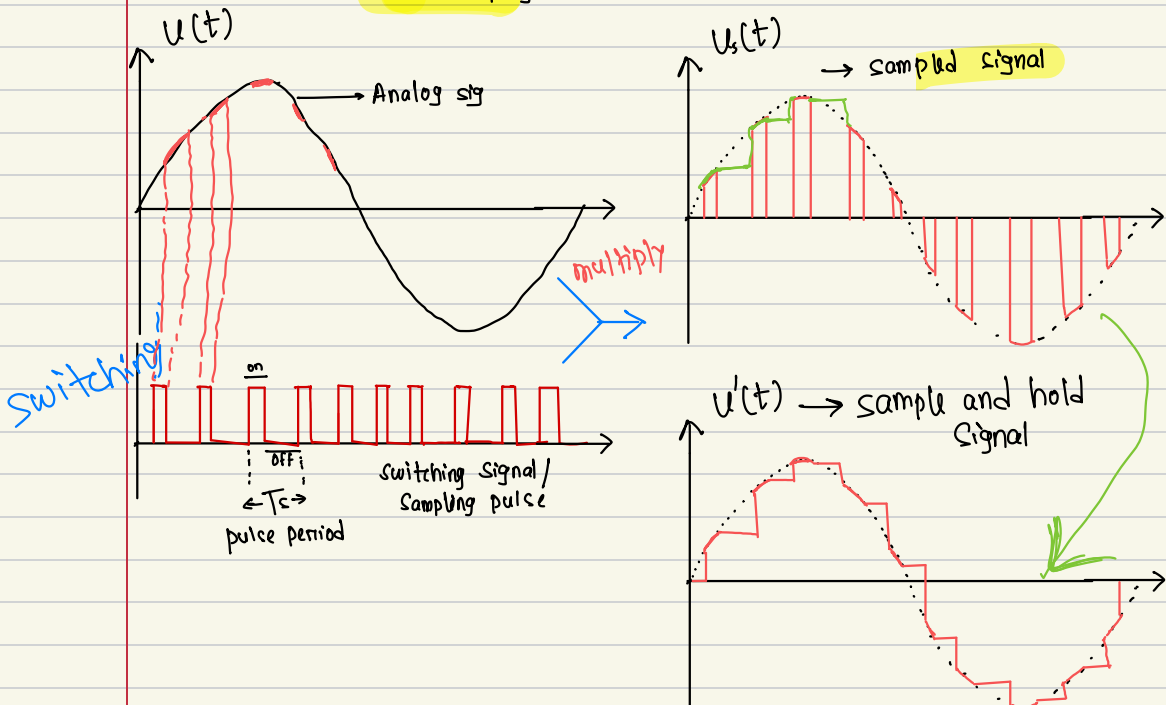 u(t)
Analog sig
switching
on
OFF
Ts
pulse period
switching signal/
sampling pulse
multiply
Us(t)
→ sampled signal
u'(t) → sample and hold
signal